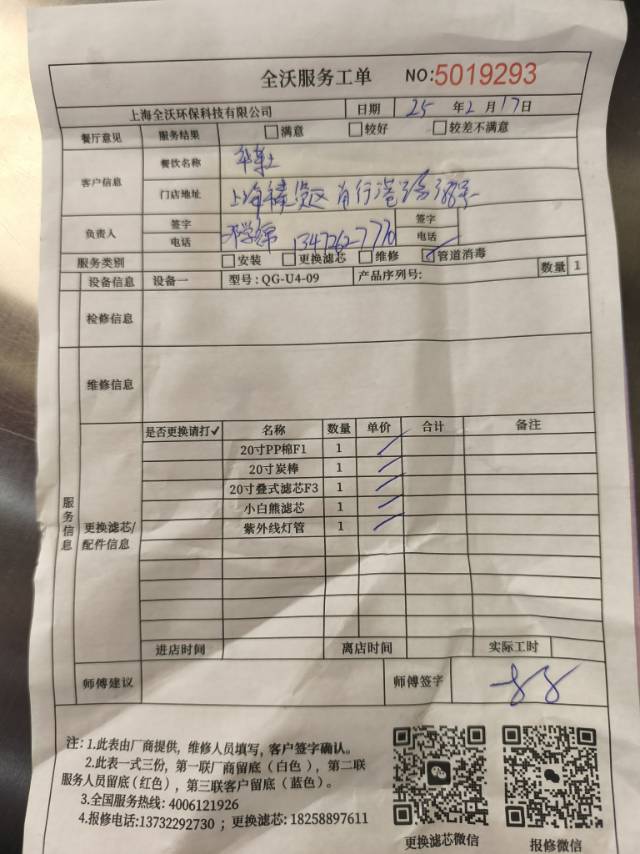 全沃服务工单 NO:5019293
上海全沃环保科技有限公司 日期 25 年 2 月 17 日
餐厅意见 服务结果 满意 较好 较差不满意
客户信息 餐饮名称 华莱士
门店地址 上海 区 号
负责人 签字 签字
电话 电话
服务类别 安装 更换滤芯 维修 管道消毒
设备信息 设备一 型号:QG-U4-09 产品序列号: 数量 1
服务信息
检修信息
维修信息
更换滤芯/配件信息
是否更换请打✓ 名称 数量 单价 合计 备注
20寸PP棉F1 1
20寸炭棒 1
20寸叠式滤芯F3 1
小白熊滤芯 1
紫外线灯管 1
进店时间 离店时间 实际工时
师傅建议 师傅签字
注: 1.此表由厂商提供，维修人员填写，客户签字确认。
2.此表一式三份，第一联厂商留底（白色），第二联
服务人员留底（红色），第三联客户留底（蓝色）。
3.全国服务热线: 4006121926
4.报修电话:13732292730 ；更换滤芯: 18258897611
更换滤芯微信 报修微信